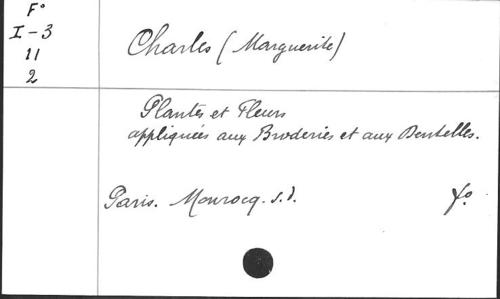 F°
I-3
11
2
Charles (Marguerite)
Plantes et Fleurs
appliquées aux Broderies et aux Dentelles.
Paris. Mourocq. s.d. fo.